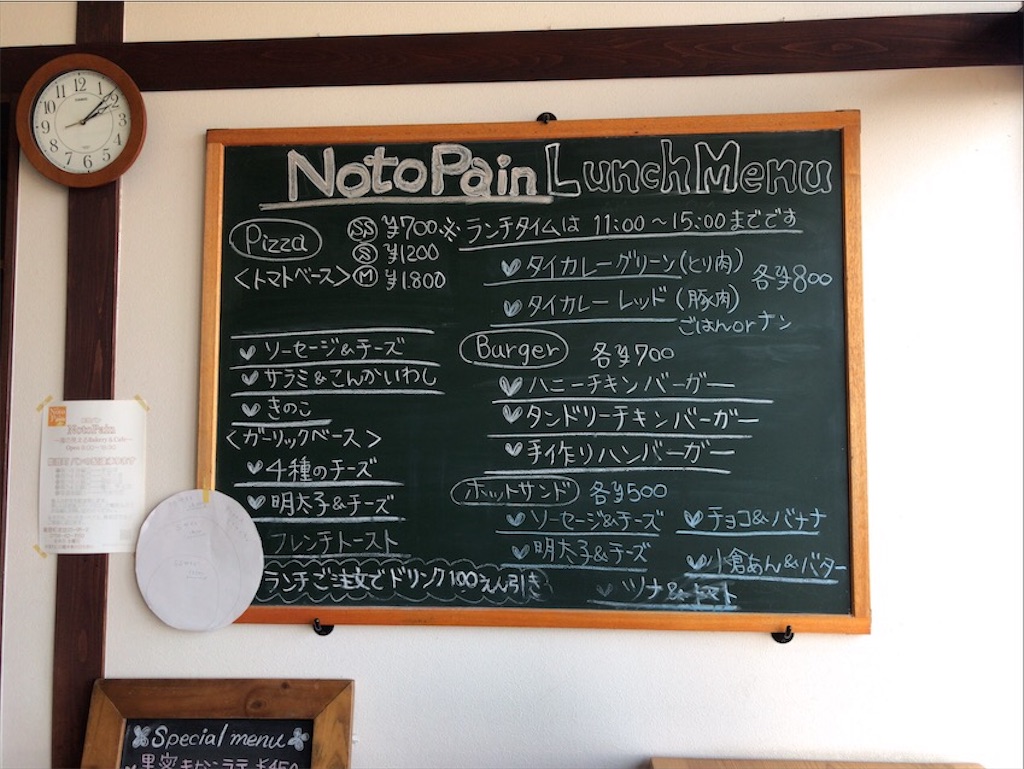 NotoPain LunchMenu
Pizza
SS ¥700
S ¥1200
<トマトベース> M ¥1.800
ソーセージ&チーズ
サラミ&こんかいわし
きのこ
<ガーリックベース>
4種のチーズ
明太子&チーズ
フレンチトースト
ランチご注文でドリンク100えん引き
※ランチタイムは 11:00~15:00までです
タイカレーグリーン(とり肉)
各¥800
タイカレー レッド(豚肉)
ごはんorナン
Burger 各¥700
ハニーチキンバーガー
タンドリーチキンバーガー
手作りハンバーガー
ホットサンド 各¥500
ソーセージ&チーズ
チョコ&バナナ
明太子&チーズ
小倉あん&バター
ツナ&トマト
12
1
2
3
4
5
6
7
8
9
10
11
CASIO
NotoPain
NotoPain
Special menu
黒蜜きなこラテ ¥450